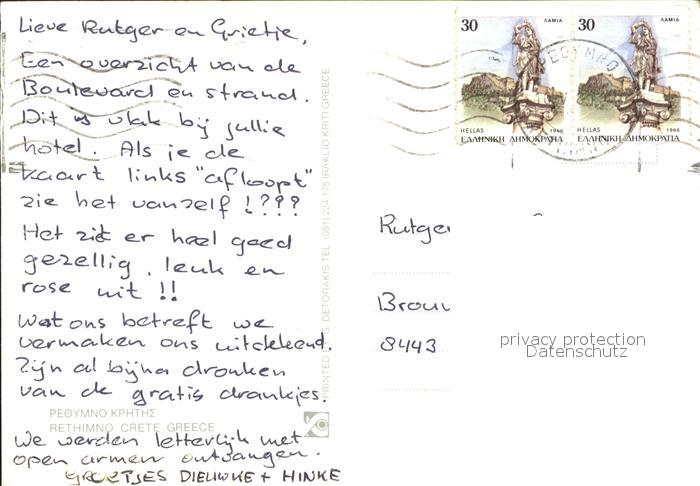 Lieve Rutger en Grietje,
Een overzicht van de
Boulevard en strand.
Dit is vlak bij jullie
hotel. Als je de
kaart links "afloopt"
zie het vanzelf !???
Het ziet er heel goed
gezellig, leuk en
rose uit !!
Wat ons betreft we
vermaken ons uitstekend.
Zijn al bijna dronken
van de gratis drankjes.
ΡΕΘΥΜΝΟ ΚΡΗΤΗΣ
RETHIMNO CRETE GREECE
We werden letterlijk met
open armen ontvangen.
GROETJES DIEUWKE + HINKE
DETORAKIS TEL. (081) 224 175 IRAKLIO KRITI GREECE
PRINTED
30 ΛΑΜΙΑ
HELLAS 1988
ΕΛΛΗΝΙΚΗ ΔΗΜΟΚΡΑΤΙΑ
30 ΛΑΜΙΑ
HELLAS 1988
ΕΛΛΗΝΙΚΗ ΔΗΜΟΚΡΑΤΙΑ
ΡΕΘΥΜΝΟ
Rutger
Brouw
8443
privacy protection
Datenschutz